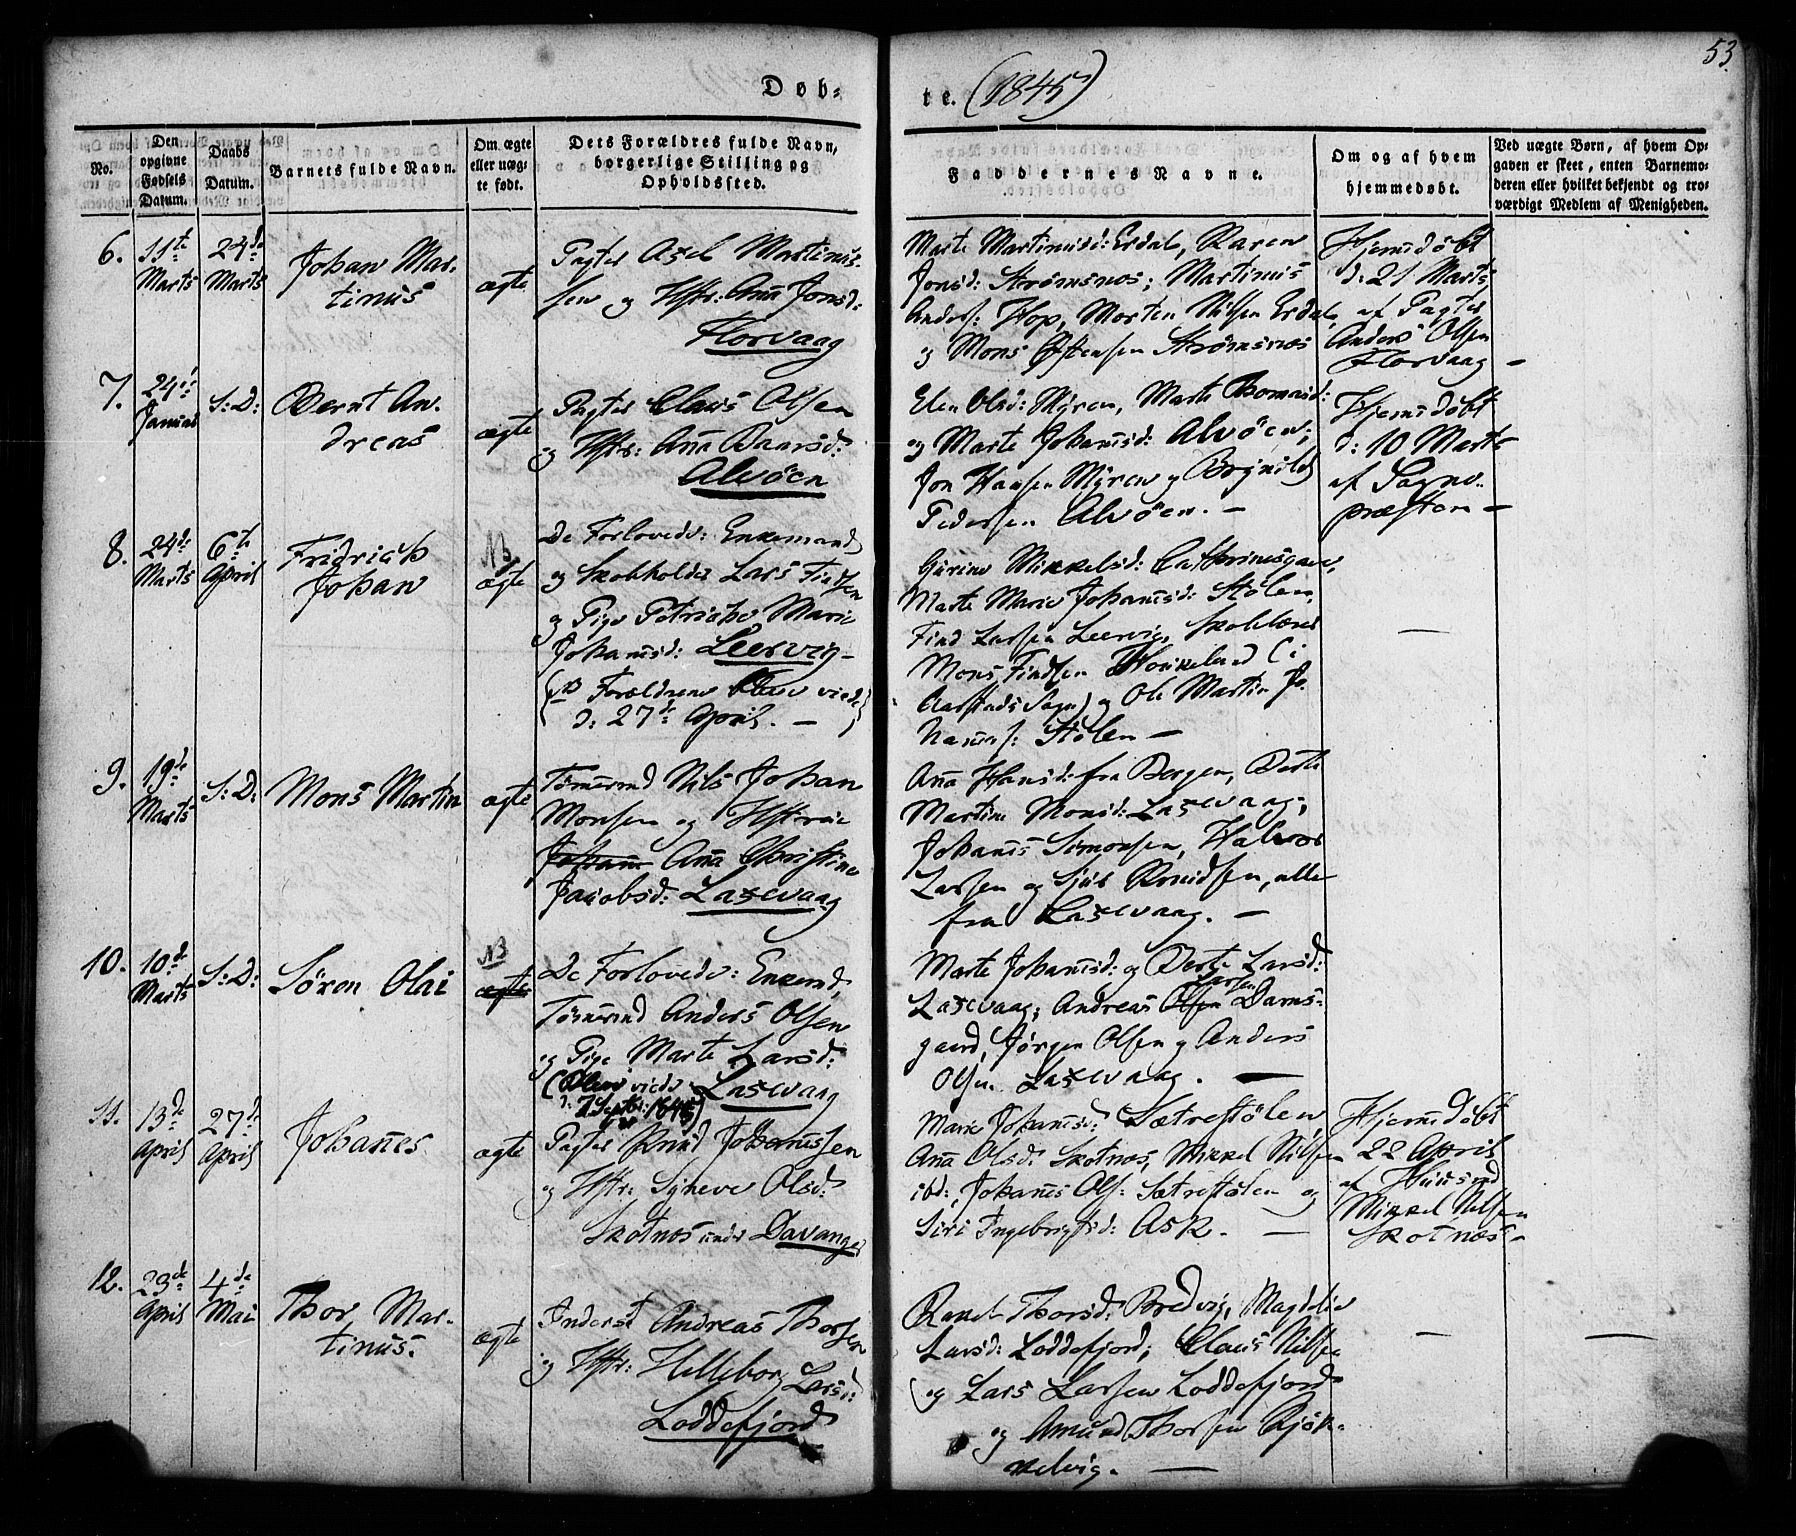 53.
Døb-
te. (1845)
No.
Den opgivne Fødsels Datum.
Daabs Datum.
Barnets fulde Navn.
Om ægte eller uæg-te født.
Dets Forældres fulde Navn, borgerlige Stilling og Opholdssted.
Faddernes Navne.
Om og af hvem hjemmedøbt.
Ved uægte Børn, af hvem Op-gaven er skeet, enten Barnemo-deren eller hvilket bekjendt og tro-værdigt Medlem af Menigheden.
6.
11te
Marts
24de
Marts
Johan Mar-
tinus
ægte
Pagter Axel Martinus-
sen og Hstr: Anna Jonsd:
Florvaag
Marte Martinusd: Erdal, Karen
Jonsd: Strømsnes; Martinus
Anders: Hop, Morten Nilsen Erdal
og Mons Østensen Strømsnæs
Hjemdøbt
d: 21 Marts
af Pagter
Anders Olsen
Florvaag –
7.
24de
Januar
S: D:
Bernt An-
dreas
ægte
Pagter Claus Olsen
og Hstr: Anna Baarsd:
Alvøen
Elen Olsd: Myren, Marte Thomasd:
og Marte Johannsd: Alvøen;
Jon Hansen Myren og Brynild
Pedersen Alvøen. –
Hjemdøbt
d: 10 Marts
af Sogne-
præsten –
8.
24de
Marts
6te
April
Fridrich
Johan
NB
ægte
De Forlovede: Enkemand
og Skolholder Lars Findsen
og Pige Petriche Marie
Johannsd: Leervig –
(NB Forældrene blev viede
d: 27de April. –
Gurine Mikkelsd: Cathrinegaard,
Marte Marie Johannsd: Stølen,
Find Larsen Leervig, Skolelærer
Mons Findsen Haukeland (i
Aarstads Sogn) og Ole Martin Jo-
hannes: Stølen –
–
9.
19de
Marts
S: D:
Mons Martin
ægte
Tømmermd Nils Johan
Monsen og Hstrue
Anna Christine
Jacobsd: Laxevaag
Anna Hansd: fra Bergen, Berte
Martine Monsd: Laxevaag;
Johannes Simonsen, Halvor
Larsen og Sjur Knudsen, alle
fra Laxevaag. –
10.
10de
Marts
S: D:
Søren Olai
NB
ægte
De Forlovede: Enkemd,
Tømmermd Anders Olsen
og Pige Marte Larsd:
(bleve viede Laxevaag
d: 7 Septbr: 1845)
Marte Johannsd: og Berte Larsd:
Larsen
Laxevaag; Andreas Olsen Dams-
gaard, Jørgen Olsen og Anders
Olsen Laxevaag. –
11.
13de
April
27de
April
Johannes
ægte
Pagter Knud Johannessen
og Hstr: Synneve Olsd:
Skotnæs under Davanger
Marie Johannsd: Sætrestølen,
Anna Olsd: Skotnæs, Mikkel Nilsen
ibd:, Johannes Ols: Sætrestølen og
Siri Ingebrigtsd: Ask. –
Hjemdøbt
22 April
af Huusmd
Mikkel Nilsen
Skotnæs –
12.
23de
April
4de
Mai
Thor Mar-
tinus.
ægte
Inderst Andreas Thorsen
og Hstr: Helleborg Larsd:
Loddefjord
Rakel Thorsd: Bredvig, Magdeli
Larsd: Loddefjord; Claus Nilsen
og Lars Larsen Loddefjord
og Amund Thorsen Bjøk-
nelvig. –
–
–